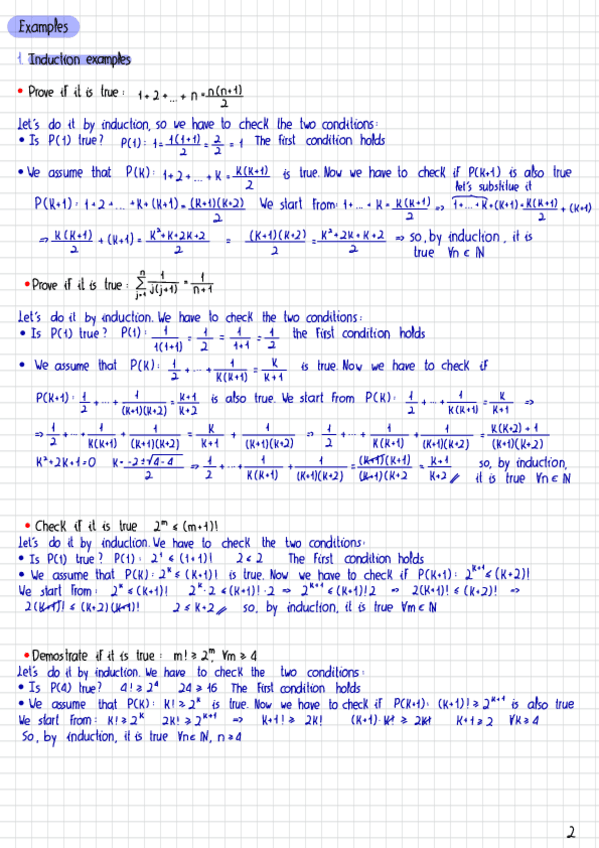 Examples
1. Induction examples
• Prove if it is true: 1+2+...+n = n(n+1)/2
Let's do it by induction, so we have to check the two conditions:
• Is P(1) true? P(1): 1 = 1(1+1)/2 = 2/2 = 1 The first condition holds
• We assume that P(K): 1+2+...+K = K(K+1)/2 is true. Now we have to check if P(K+1) is also true
let's substitue it
P(K+1): 1+2+...+K+(K+1) = (K+1)(K+2)/2 We start from: 1+...+K = K(K+1)/2 => 1+...+K+(K+1) = K(K+1)/2 + (K+1)
=> K(K+1)/2 + (K+1) = K²+K+2K+2/2 = (K+1)(K+2)/2 = K²+2K+K+2/2 => so, by induction, it is
true ∀n ∈ ℕ
• Prove if it is true: ∑_{j=1}^{n} 1/j(j+1) = 1/n+1
Let's do it by induction. We have to check the two conditions:
• Is P(1) true? P(1): 1/1(1+1) = 1/2 = 1/1+1 = 1/2 the first condition holds
• We assume that P(K): 1/2 + ... + 1/K(K+1) = K/K+1 is true. Now we have to check if
P(K+1): 1/2 + ... + 1/(K+1)(K+2) = K+1/K+2 is also true. We start from P(K): 1/2 + ... + 1/K(K+1) = K/K+1 =>
=> 1/2 + ... + 1/K(K+1) + 1/(K+1)(K+2) = K/K+1 + 1/(K+1)(K+2) => 1/2 + ... + 1/K(K+1) + 1/(K+1)(K+2) = K(K+2)+1/(K+1)(K+2)
K²+2K+1=0 K = -2±√4-4/2 => 1/2 + ... + 1/K(K+1) + 1/(K+1)(K+2) = (K+1)(K+1)/(K+1)(K+2) = K+1/K+2 // so, by induction,
it is true ∀n ∈ ℕ
• Check if it is true 2^m ≤ (m+1)!
Let's do it by induction. We have to check the two conditions:
• Is P(1) true? P(1): 2¹ ≤ (1+1)! 2 ≤ 2 The first condition holds
• We assume that P(K): 2^K ≤ (K+1)! is true. Now we have to check if P(K+1): 2^{K+1} ≤ (K+2)!
We start from: 2^K ≤ (K+1)! 2^K·2 ≤ (K+1)!·2 => 2^{K+1} ≤ (K+1)!2 => 2(K+1)! ≤ (K+2)! =>
2(K+1)! ≤ (K+2)(K+1)! 2 ≤ K+2 // so, by induction, it is true ∀m ∈ ℕ
• Demostrate if it is true: m! ≥ 2^m, ∀m ≥ 4
Let's do it by induction. We have to check the two conditions:
• Is P(4) true? 4! ≥ 2⁴ 24 ≥ 16 The first condition holds
• We assume that P(K): K! ≥ 2^K is true. Now we have to check if P(K+1): (K+1)! ≥ 2^{K+1} is also true
We start from: K! ≥ 2^K 2K! ≥ 2^{K+1} => K+1! ≥ 2K! (K+1)·K! ≥ 2K! K+1 ≥ 2 ∀K ≥ 4
So, by induction, it is true ∀n ∈ ℕ, n ≥ 4
2